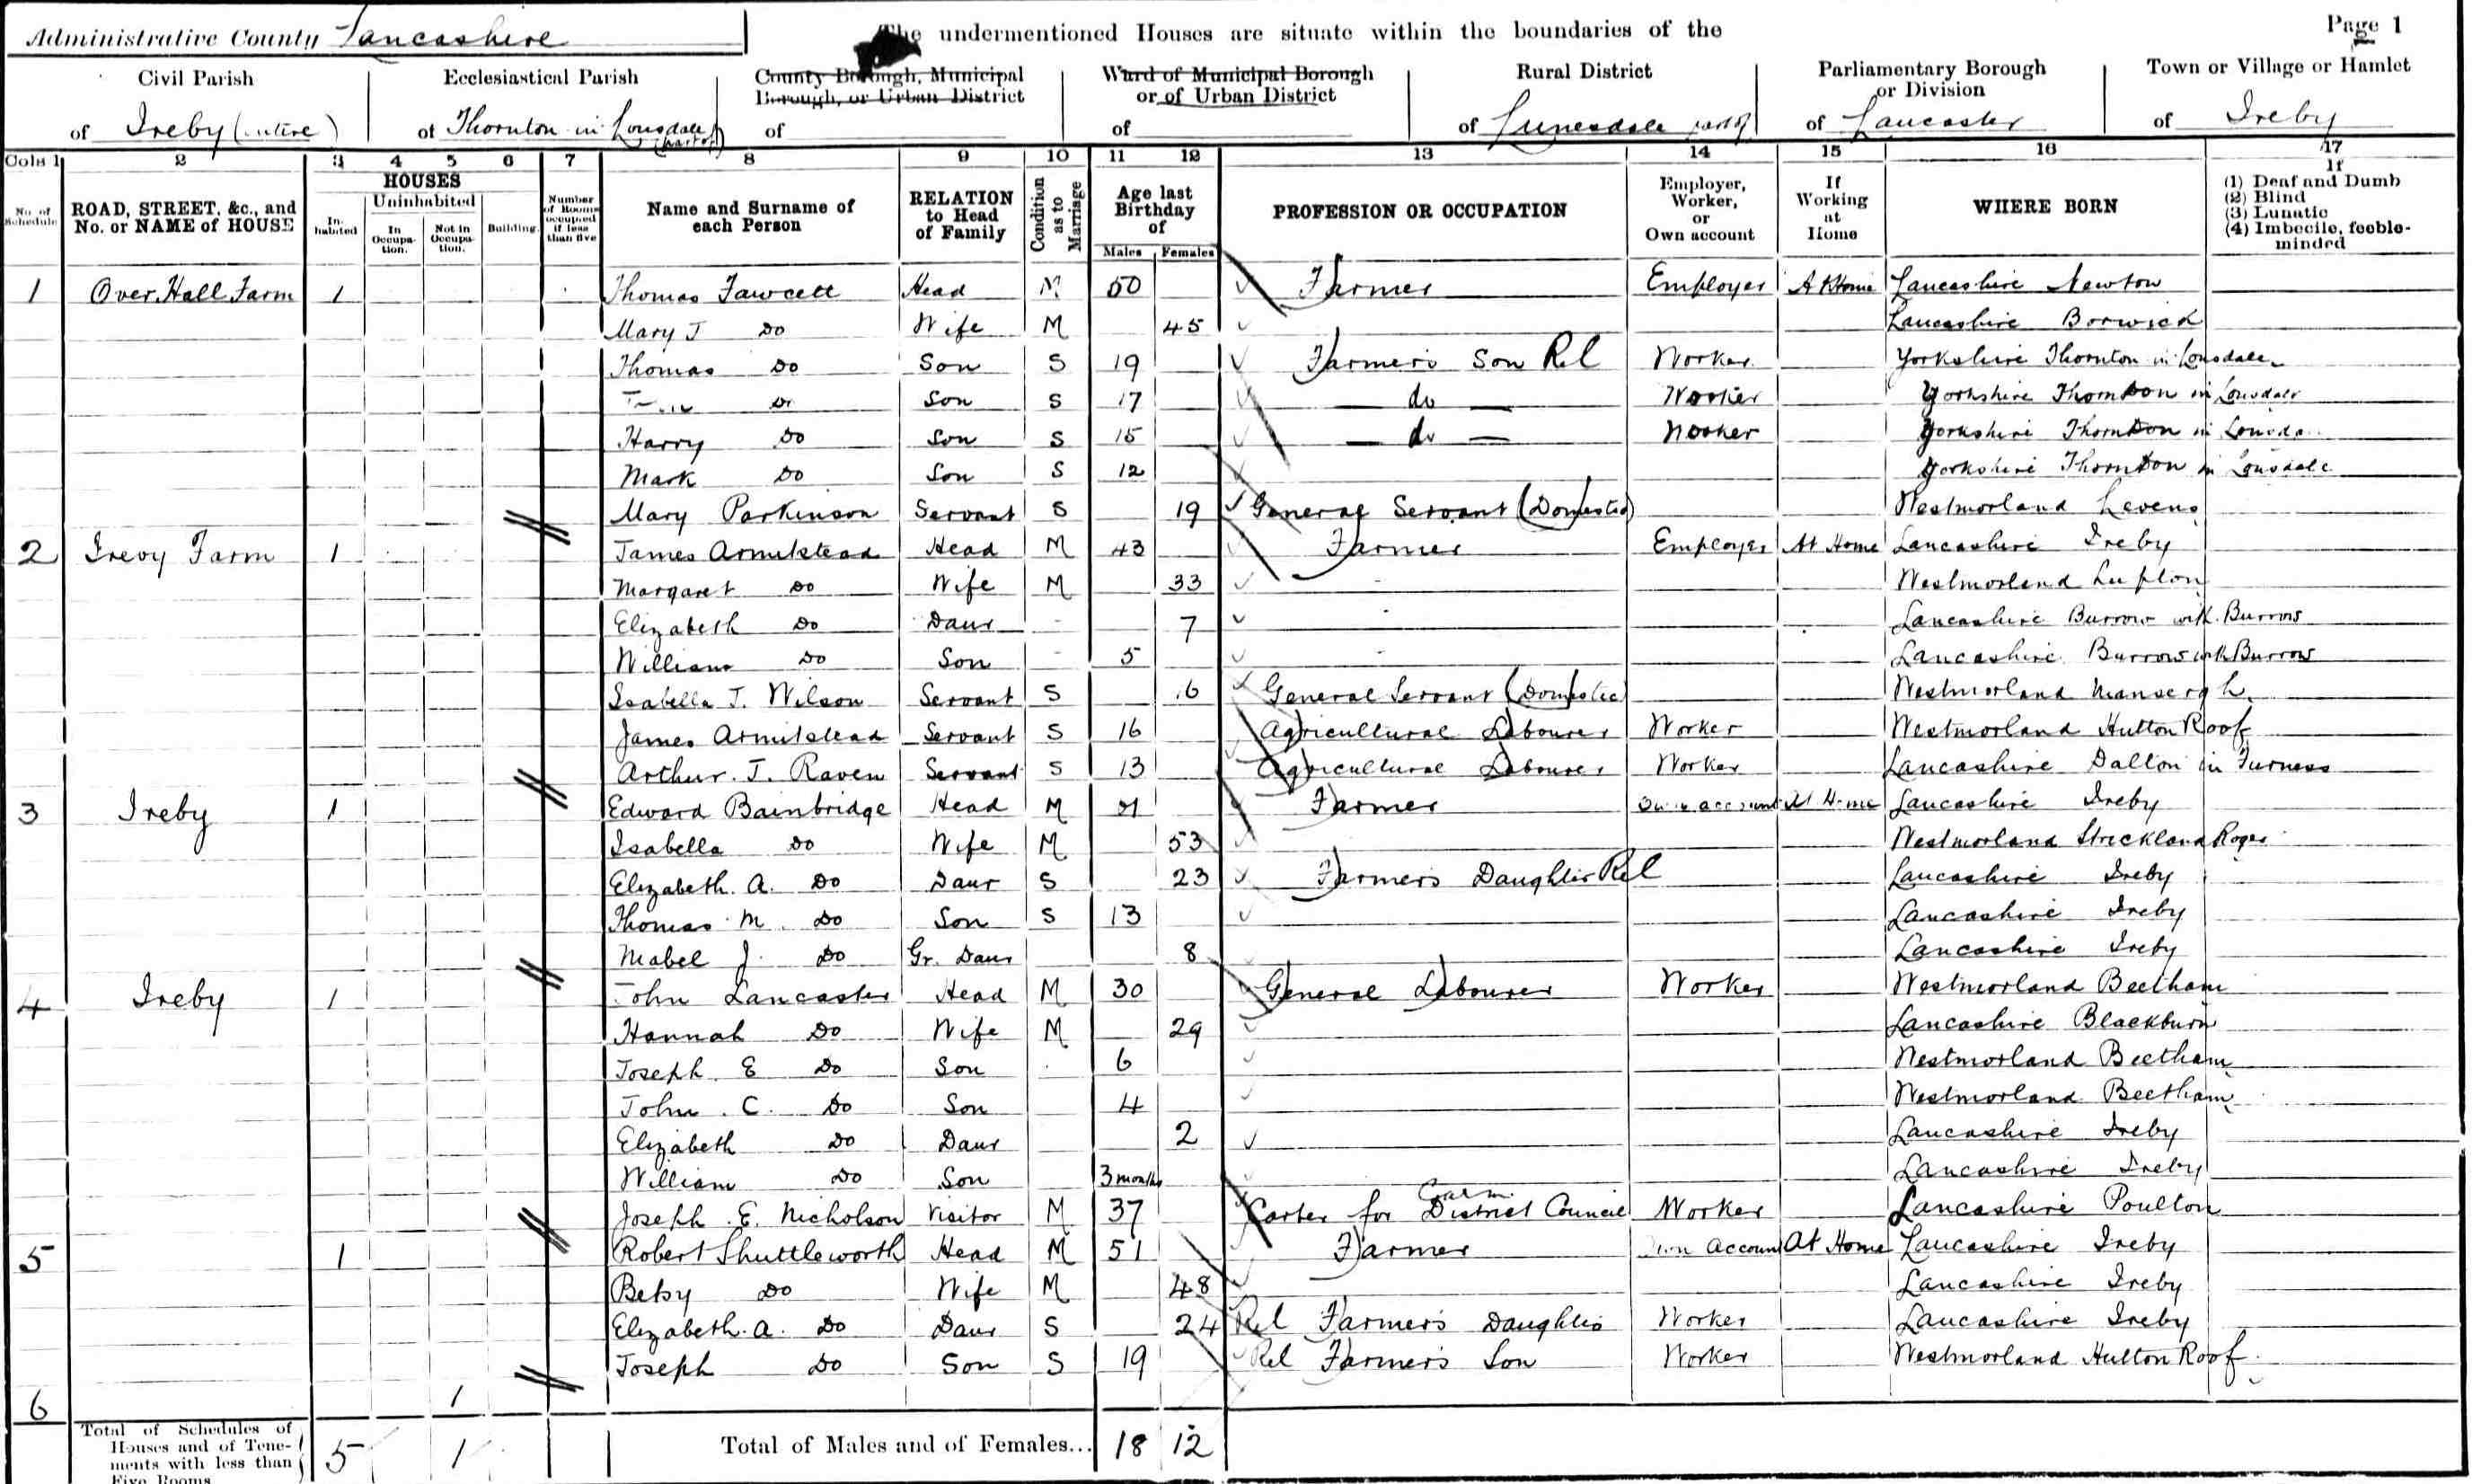 Page 1
Administrative County Lancashire
The undermentioned Houses are situate within the boundaries of the
Civil Parish
of Ireby (entire)
Ecclesiastical Parish
of Thornton in Lonsdale (part of)
County Borough, Municipal
Borough, or Urban District
of
Ward of Municipal Borough
or of Urban District
of
Rural District
of Lunesdale part of
Parliamentary Borough
or Division
of Lancaster
Town or Village or Hamlet
of Ireby
Cols 1 2 3 4 5 6 7 8 9 10 11 12 13 14 15 16 17
No. of Schedule
ROAD, STREET, &c., and No. or NAME of HOUSE
HOUSES
In-habited
Uninhabited
In Occupa-tion.
Not in Occupa-tion.
Building.
Number of Rooms occupied if less than five
Name and Surname of each Person
RELATION to Head of Family
Condition as to Marriage
Age last Birthday of
Males Females
PROFESSION OR OCCUPATION
Employer, Worker, or Own account
If Working at Home
WHERE BORN
If
(1) Deaf and Dumb
(2) Blind
(3) Lunatic
(4) Imbecile, feeble-minded
1 Over Hall Farm 1 Thomas Fawcett Head M 50 Farmer Employer At Home Lancashire Newton
Mary J Do Wife M 45 Lancashire Borwick
Thomas Do Son S 19 Farmer's Son Rel Worker Yorkshire Thornton in Lonsdale
Do Son S 17 do Worker Yorkshire Thornton in Lonsdale
Harry Do Son S 15 do Worker Yorkshire Thornton in
Mark Do Son S 12 Yorkshire Thornton in Lonsdale
Mary Parkinson Servant S 19 General Servant (Domestic) Westmorland Levens
2 Ireby Farm 1 James Armitstead Head M 43 Farmer Employer At Home Lancashire Ireby
Margaret Do Wife M 33 Westmorland Lupton
Elizabeth Do Daur 7 Lancashire Burrow with Burrow
William Do Son 5 Lancashire Burrow with Burrow
Isabella J. Wilson Servant S 16 General Servant (Domestic) Westmorland Mansergh
James Armitstead Servant S 16 Agricultural Labourer Worker Westmorland Hutton Roof
Arthur. J. Raven Servant S 13 Agricultural Labourer Worker Lancashire Dalton in Furness
3 Ireby 1 Edward Bainbridge Head M Farmer Own account At Home Lancashire Ireby
Isabella Do Wife M 53 Westmorland Strickland Roger
Elizabeth. A. Do Daur S 23 Farmer's Daughter Rel Lancashire Ireby
Thomas M. Do Son S 13 Lancashire Ireby
Mabel J. Do Gr. Daur 8 Lancashire Ireby
4 Ireby 1 John Lancaster Head M 30 General Labourer Worker Westmorland Beetham
Hannah Do Wife M 29 Lancashire Blackburn
Joseph. E Do Son 6 Westmorland Beetham
John. C. Do Son 4 Westmorland Beetham
Elizabeth Do Daur 2 Lancashire Ireby
William Do Son 3 months Lancashire Ireby
Joseph. E. Nicholson Visitor M 37 Carter for District Council Worker Lancashire Poulton
5 1 Robert Shuttleworth Head M 51 Farmer Own Account At Home Lancashire Ireby
Betsy Do Wife M 48 Lancashire Ireby
Elizabeth. A. Do Daur S 24 Rel Farmer's Daughter Worker Lancashire Ireby
Joseph Do Son S 19 Rel Farmer's Son Worker Westmorland Hutton Roof
6 1
Total of Schedules of Houses and of Tene-ments with less than Five Rooms 5 1 Total of Males and of Females... 18 12